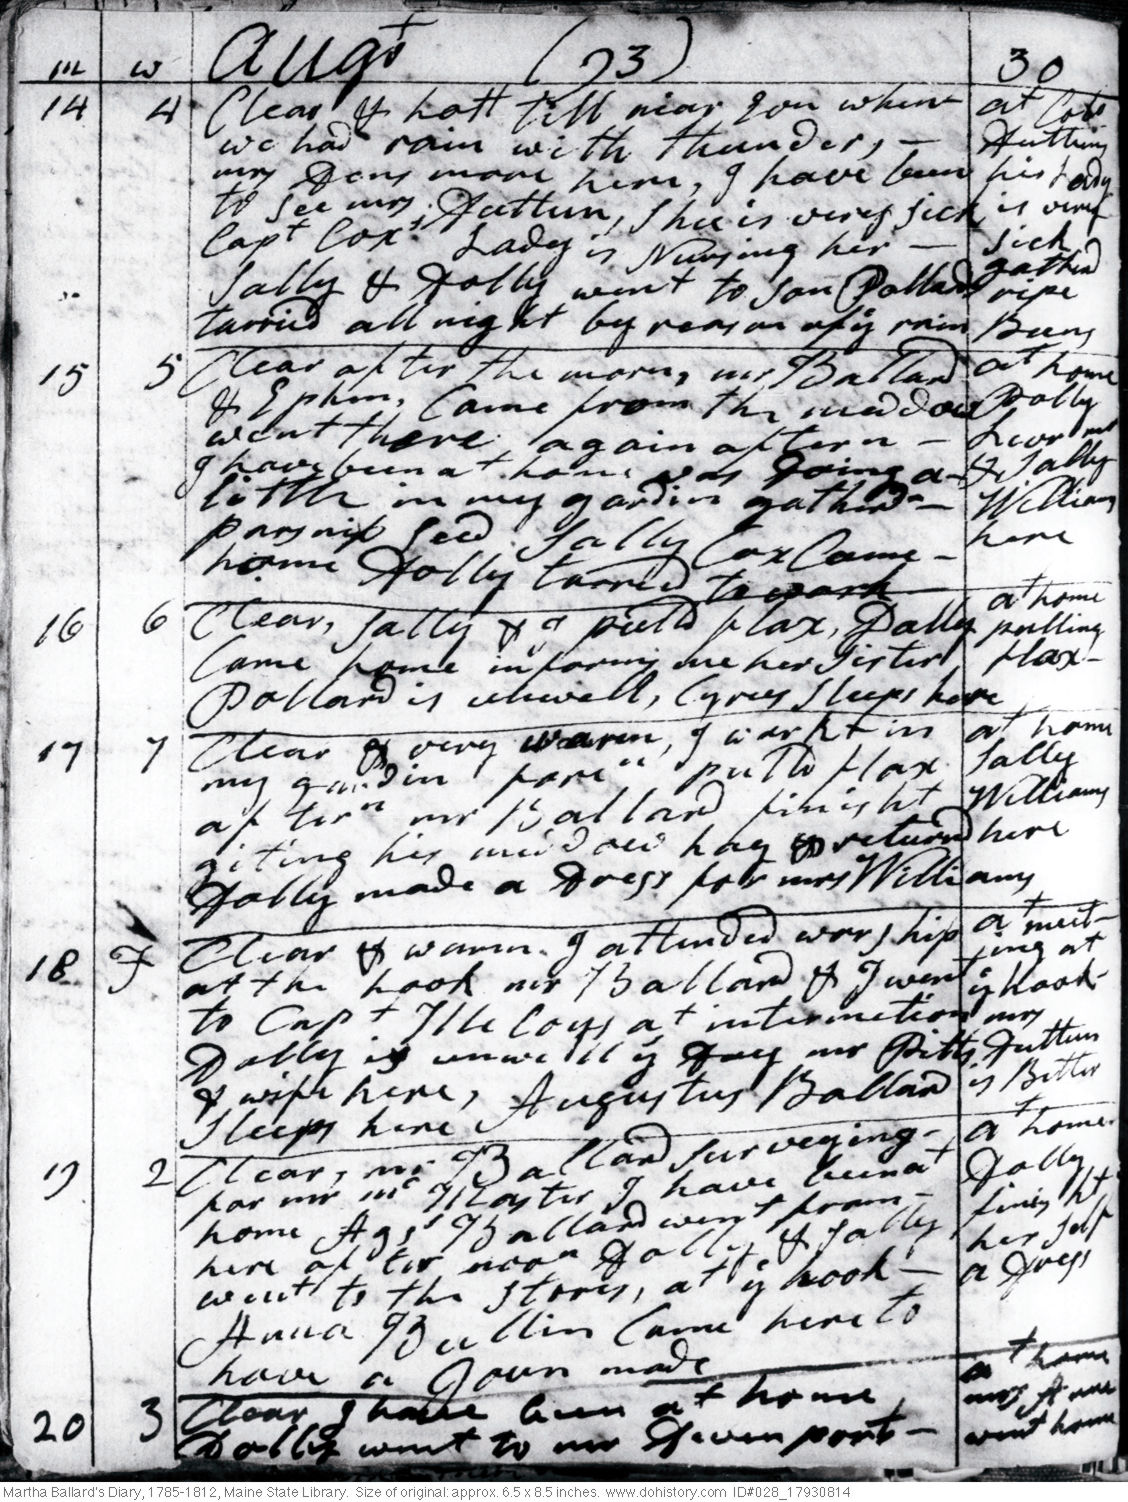 m w Augt (93) 30
14 4 Clear & hott till near Son when
we had rain with thunder, —
mrs Dens more here, I have been
to see mrs Duttun, shee is very sick
Capt Coxt Lady is Nursing her —
Sally & Dolly went to son Pollards
tarried all night by reason of ÿ rain
at Cols
Duttuns
his Lady
is very
sick
gathrd
ripe
Beens
15 5 Clear after the morn, mr Ballard
& Ephm, Came from the meddow
went there again aftern —
I have been at home was doing a
little in my gardin gatherd —
parsnip seed. Sally Cox Came —
home Dolly tarried to wash
at home
Polly
&. Sally
Williams
here
16 6 Clear, Sally & I pulld flax, Dolly
Came home informs me her Sister
Pollard is unwell, Cyrus sleeps here
at home
pulling
flax —
17 7 Clear & very warm, I workt in
my gardin foren pulld flax
aftern mr Ballard finisht
giting his meddow hay & returnd
Dolly made a Dress for mrs Williams
at home
Sally
Williams
here
18 F Clear & warm. I attended worship
at the hook mr Ballard & I went
to Capt Coys at intermetion
Dolly is unwell ÿ Day mr Pitts
& wife here, Augustus Ballard
sleeps here
at meet-
ing at
ÿ hook-
mrs
Duttun
is Better
19 2 Clear, mr Ballard surveying —
for mr mc Master I have been at
home Ags Ballard went from —
here after noon Dolly & Sally
went to the stores, at ÿ hook —
Anna Bullin Came here to
have a Goun made
at home
Dolly
finisht
her self
a Dress
20 3 Clear I have been at home
Dolly went to mr Devenports —
at home
mrs
went home
Martha Ballard's Diary, 1785-1812, Maine State Library. Size of original: approx. 6.5 x 8.5 inches. www.dohistory.com ID#028_17930814